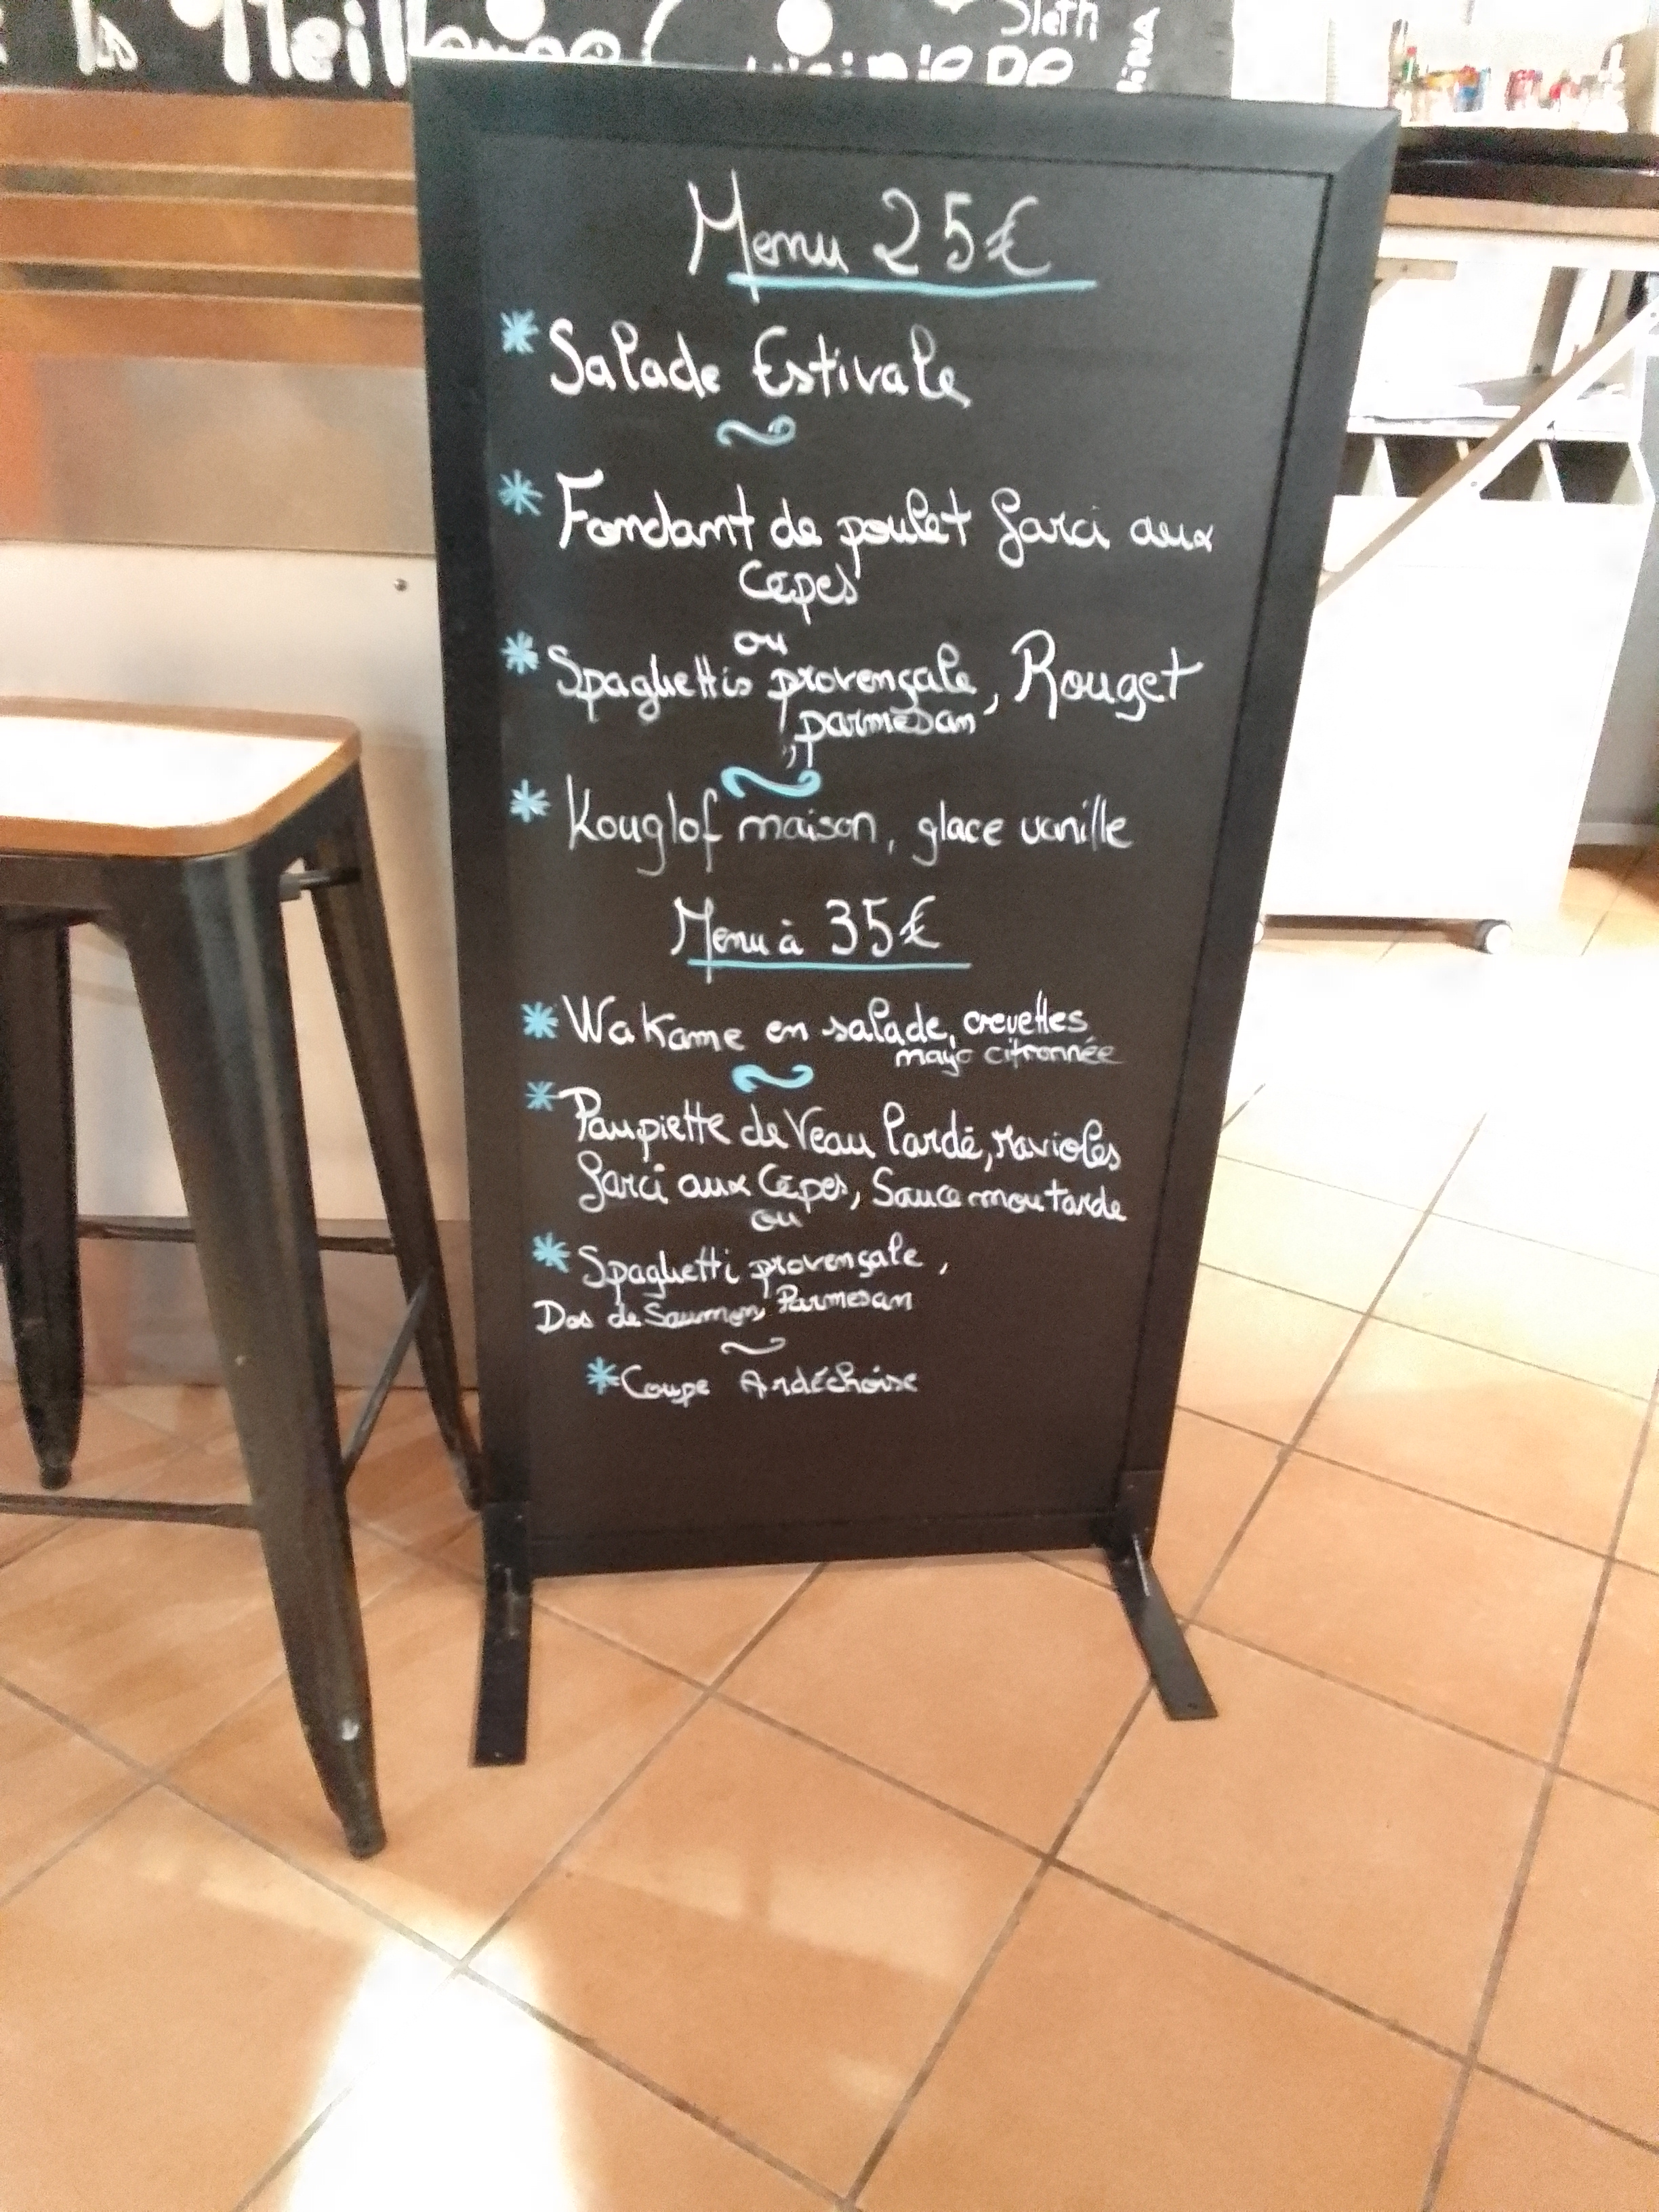 Menu 25€
* Salade Estivale
* Fondant de poulet farci aux
Cêpes
ou
* Spaghettis provençale, Rouget
, parmesan
* Kouglof maison, glace vanille
Menu à 35€
* Wakame en salade, crevettes
mayo citronnée
* Paupiette de Veau Lardé, ravioles
farci aux Cêpes, Sauce moutarde
ou
* Spaghetti provençale,
Dos de Saumon, Parmesan
* Coupe Ardéchoise